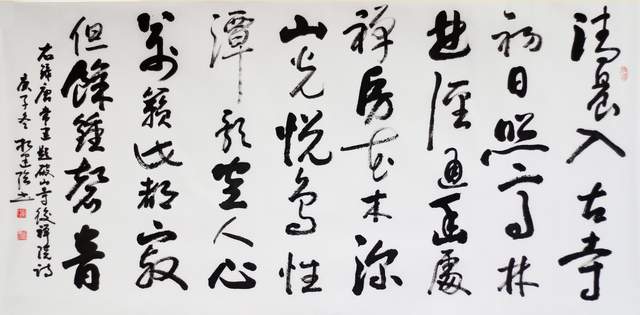 清晨入古寺
初日照高林
曲径通幽處
禅房花木深
山光悦鸟性
潭影空人心
万籁此都寂
但餘鐘磬音
右録唐常建題破山寺後禅院诗
庚子冬